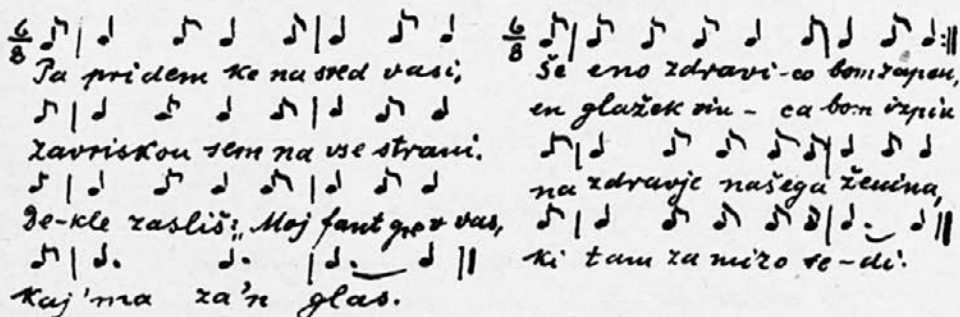 6/8
Pa pridem ke na sred vasi,
zavriskou sem na vse strani.
De-kle zasliši: Moj fant gre v vas,
kaj 'ma za 'n glas.
6/8
Še eno zdravi-co bom zapeu,
en glažek vin-ca bom izpiu
na zdravje našega ženina,
ki tam za mizo se-di.